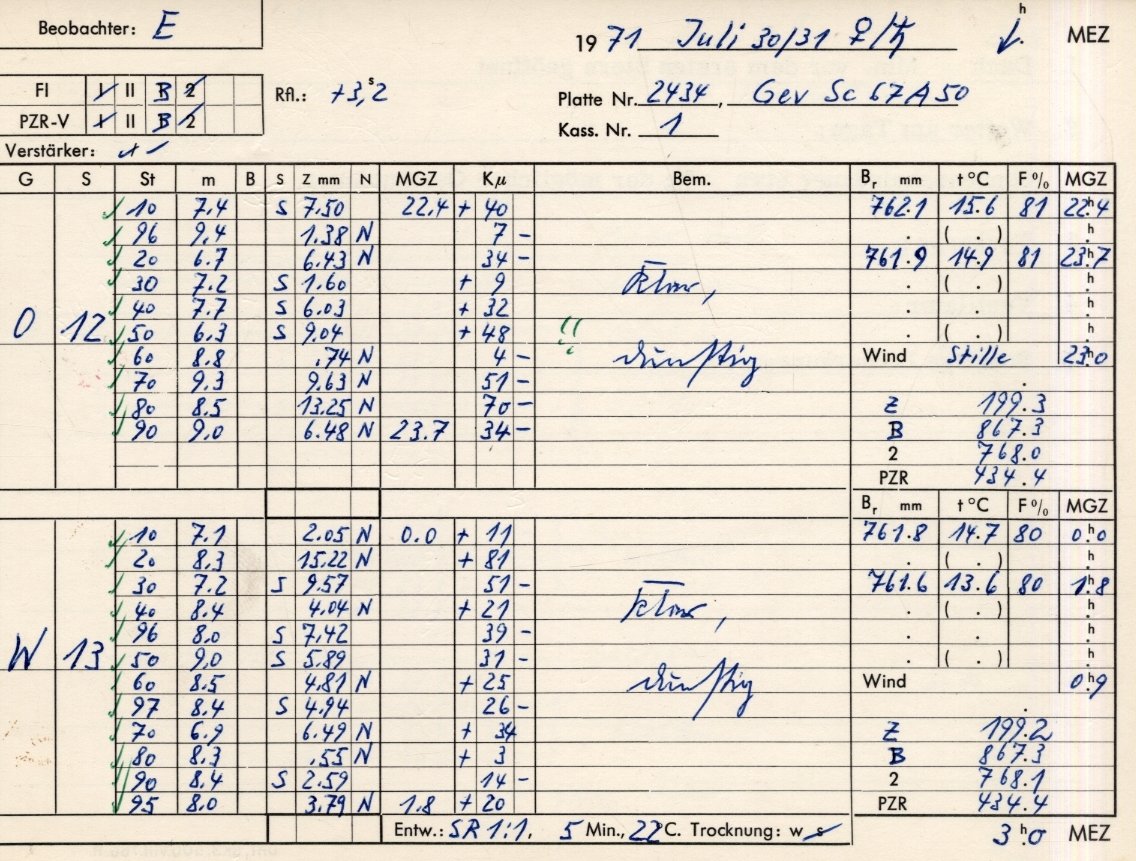 Beobachter: E
19 71 Juli 30/31 ♀/♄ h MEZ
FI I II B 2
PZR-V I II B 2
Rfl.: +3,ˢ2
Platte Nr. 2434, Gev Sc 67A50
Kass. Nr. 1
Verstärker:
G S St m B S Z mm N MGZ Kμ Bem. Bᵣ mm t °C F % MGZ
10 7.4 S 7.50 22.4 + 40 762.1 15.6 81 22ʰ.4
96 9.4 1.38 N 7 - . ( . ) ʰ.
20 6.7 6.43 N 34 - 761.9 14.9 81 23ʰ.7
30 7.2 S 1.60 + 9 klar, . ( . ) ʰ.
40 7.7 S 6.03 + 32 . . ʰ.
O 12 50 6.3 S 9.04 + 48 !! . ( . ) ʰ.
60 8.8 .74 N 4 - dunstig Wind Stille 23ʰ.0
70 9.3 9.63 N 51 - .
80 8.5 13.25 N 70 - Z 199.3
90 9.0 6.48 N 23.7 34 - B 867.3
2 768.0
PZR 434.4
Bᵣ mm t °C F % MGZ
10 7.1 2.05 N 0.0 + 11 761.8 14.7 80 0ʰ.0
20 8.3 15.22 N + 81 . ( . ) ʰ.
30 7.2 S 9.57 51 - 761.6 13.6 80 1ʰ.8
40 8.4 4.04 N + 21 klar, . ( . ) ʰ.
96 8.0 S 7.42 39 - . . ʰ.
W 13 50 9.0 S 5.89 31 - . ( . ) ʰ.
60 8.5 4.81 N + 25 dunstig Wind 0ʰ.9
97 8.4 S 4.94 26 - .
70 6.9 6.49 N + 34 Z 199.2
80 8.3 .55 N + 3 B 867.3
90 8.4 S 2.59 14 - 2 768.1
95 8.0 3.79 N 1.8 + 20 PZR 434.4
Entw.: SR 1:1, 5 Min., 22°C. Trocknung: w s 3ʰ.0 MEZ